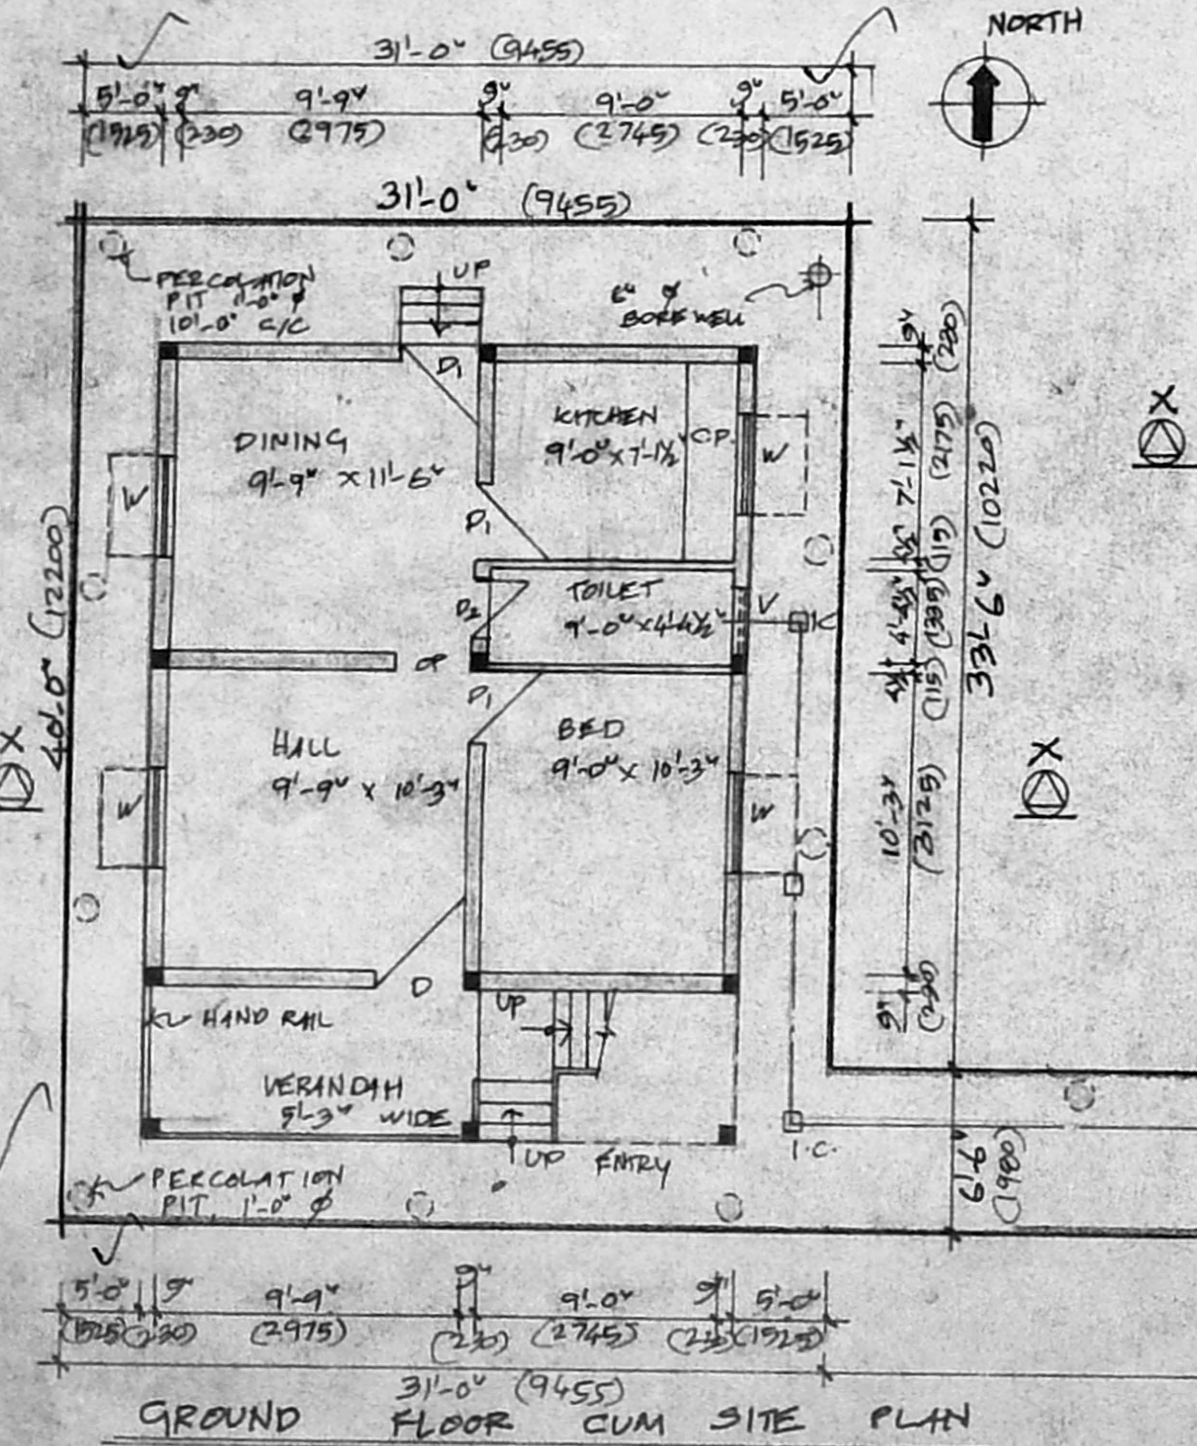 NORTH
31'-0" (9455)
5'-0" 9" 9'-9" 9" 9'-0" 9" 5'-0"
(1525) (230) (2975) (230) (2745) (230) (1525)
31'-0" (9455)
PERCOLATION
PIT 1'-0" φ
10'-0" C/C
UP
6" φ
BOREWELL
D1
DINING
9'-9" x 11'-6"
KITCHEN
9'-0" x 7'-1½"
C.P.
W
W
D1
TOILET
9'-0" x 4'-4½"
D2
V
IC
OP
D1
HALL
9'-9" x 10'-3"
BED
9'-0" x 10'-3"
W
W
D
UP
HAND RAIL
VERANDAH
5'-3" WIDE
UP ENTRY
I.C.
PERCOLATION
PIT, 1'-0" φ
40'-0" (12200)
X
X
X
9" (230)
7'-1½" (2175)
4½" (115)
4'-4½"
4½" (115)
10'-3" (3125)
9" (230)
33'-6" (10220)
6'-6"
(1980)
5'-0" 9" 9'-9" 9" 9'-0" 9" 5'-0"
(1525) (230) (2975) (230) (2745) (230) (1525)
31'-0" (9455)
GROUND FLOOR CUM SITE PLAN